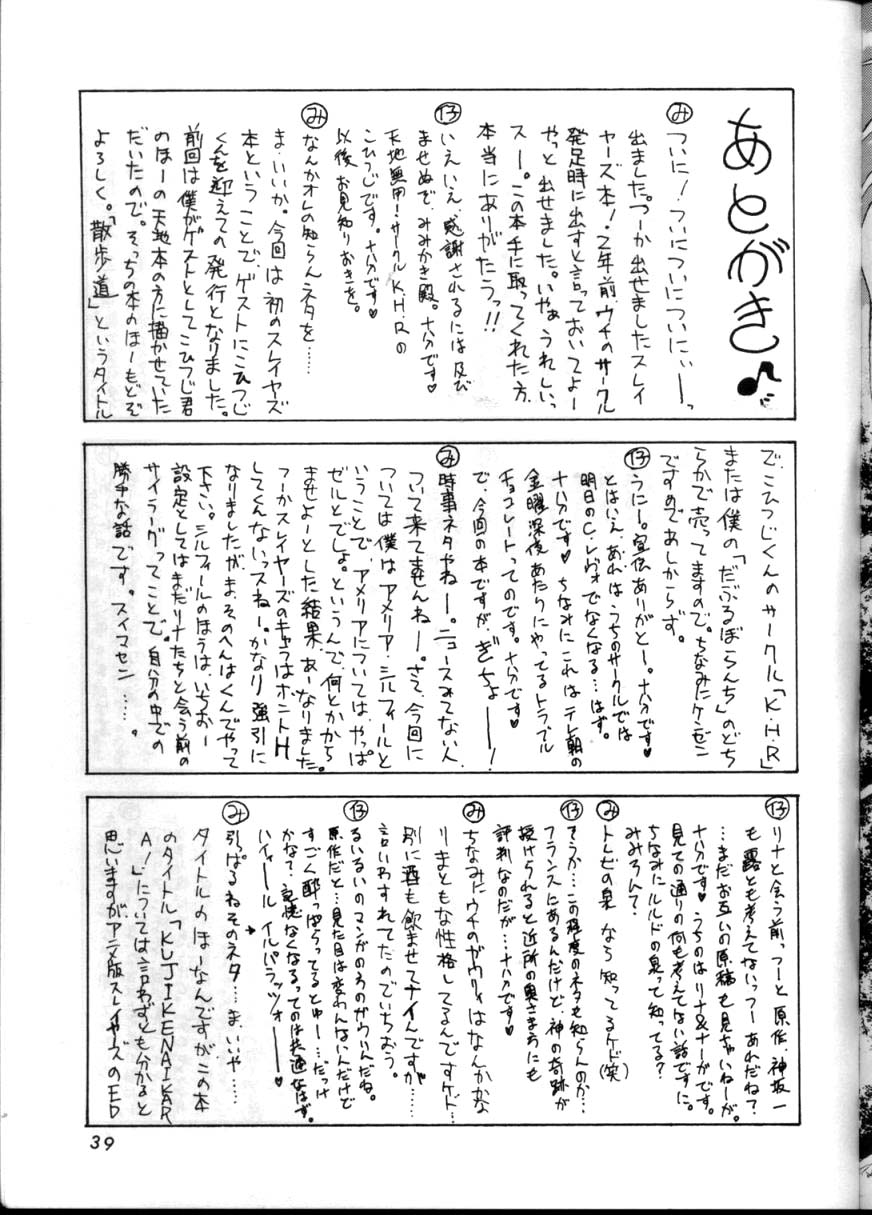 あとがき♪
み ついに！ついについについにぃーっ
出ました。つーか出せましたスレイ
ヤーズ本！2年前、ウチのサークル
発足時に出すと言っておいてよー
やっと出せました。いやぁ うれしいっ
スー。この本手に取ってくれた方、
本当にありがたうっ!!
ひ いえいえ、感謝されるには及び
ませぬで、みみかき殿。十分です♥
天地無用！サークルK.H.Rの
こひつじです。十分です♥
以後、お見知りおきを。
み なんかオレの知らんネタを……
ま・いいか。今回は初のスレイヤーズ
本ということで、ゲストにこひつじ
くんを迎えての発行となりました。
前回は僕がゲストとしてこひつじ君
のほーの天地本の方に描かせていた
だいたので。そっちの本のほーもどーぞ
よろしく。「散歩道」というタイトル
で、こひつじくんのサークル「K・H・R」
または僕の「だぶるぼらんち」のどち
らかで売ってますので。ちなみにケンゼン
ですのであしからず。
うにー。宣伝ありがとー。十分です♥
とはいえ、あれはうちのサークルでは
明日のC.レヴォでなくなる…はず。
十分です♥ ちなみにこれはテレ朝の
金曜深夜あたりにやってるトラブル
チョコレートってのです。十分です♥
で、今回の本ですが、ぎちょーー！
み 時事ネタやねー。ニュースみてない人、
ついて来てませんねー。さて、今回に
ついては僕はアメリア・シルフィールと
いうことで、アメリアについては、やっぱ
ゼルとでしょ。というんで、何とかから
ませよーとした結果、あーなりました。
つーかスレイヤーズのキャラはホントH
してくんないっスねー。かなり強引に
なりましたが、ま、そのへんはくんでやって
下さい。シルフィールのほうは、いちおー
設定としてはまだリナたちと会う前の
サイラーグってことで。自分の中での
勝手な話です。スイマセン……。
リナと会う前っつーと原作、神坂一
も露とも考えてないっつーあれだね？
…まだお互いの原稿も見ちゃいねーが。
十分です♥ うちのはリナ&ナーガです。
見ての通りの何も考えてない話ですに。
ちなみにルルドの泉って知ってる？
みみろんて？
み トレビの泉 なら 知ってるケド(笑)
そうか…この程度のネタも知らんのか…
フランスにあるんだけど、神の奇跡が
授けられると近所の奥さまらにも
評判なのだが…十分です♥
み ちなみにウチのガウリィはなんかかな
りまともな性格してるんですケド…
別に酒も飲ませてナイんですが……
言いわすれてたのでいちおう。
るいるいのマンガのもののガウリィんだね。
原作だと…見た目は変わんないんだけど
すごく酔っぱらってるとゆー…だっけ
かな？記憶なくなるってのは共通なはず。
ハイィール イルパラッツォーー♥
み 引っぱるねそのネタ…ま、いいや……
タイトルのほーなんですが、この本
のタイトル「KUJIKENAIKAR
A！」については言わずとも分かると
思いますが、アニメ版スレイヤーズのED
39